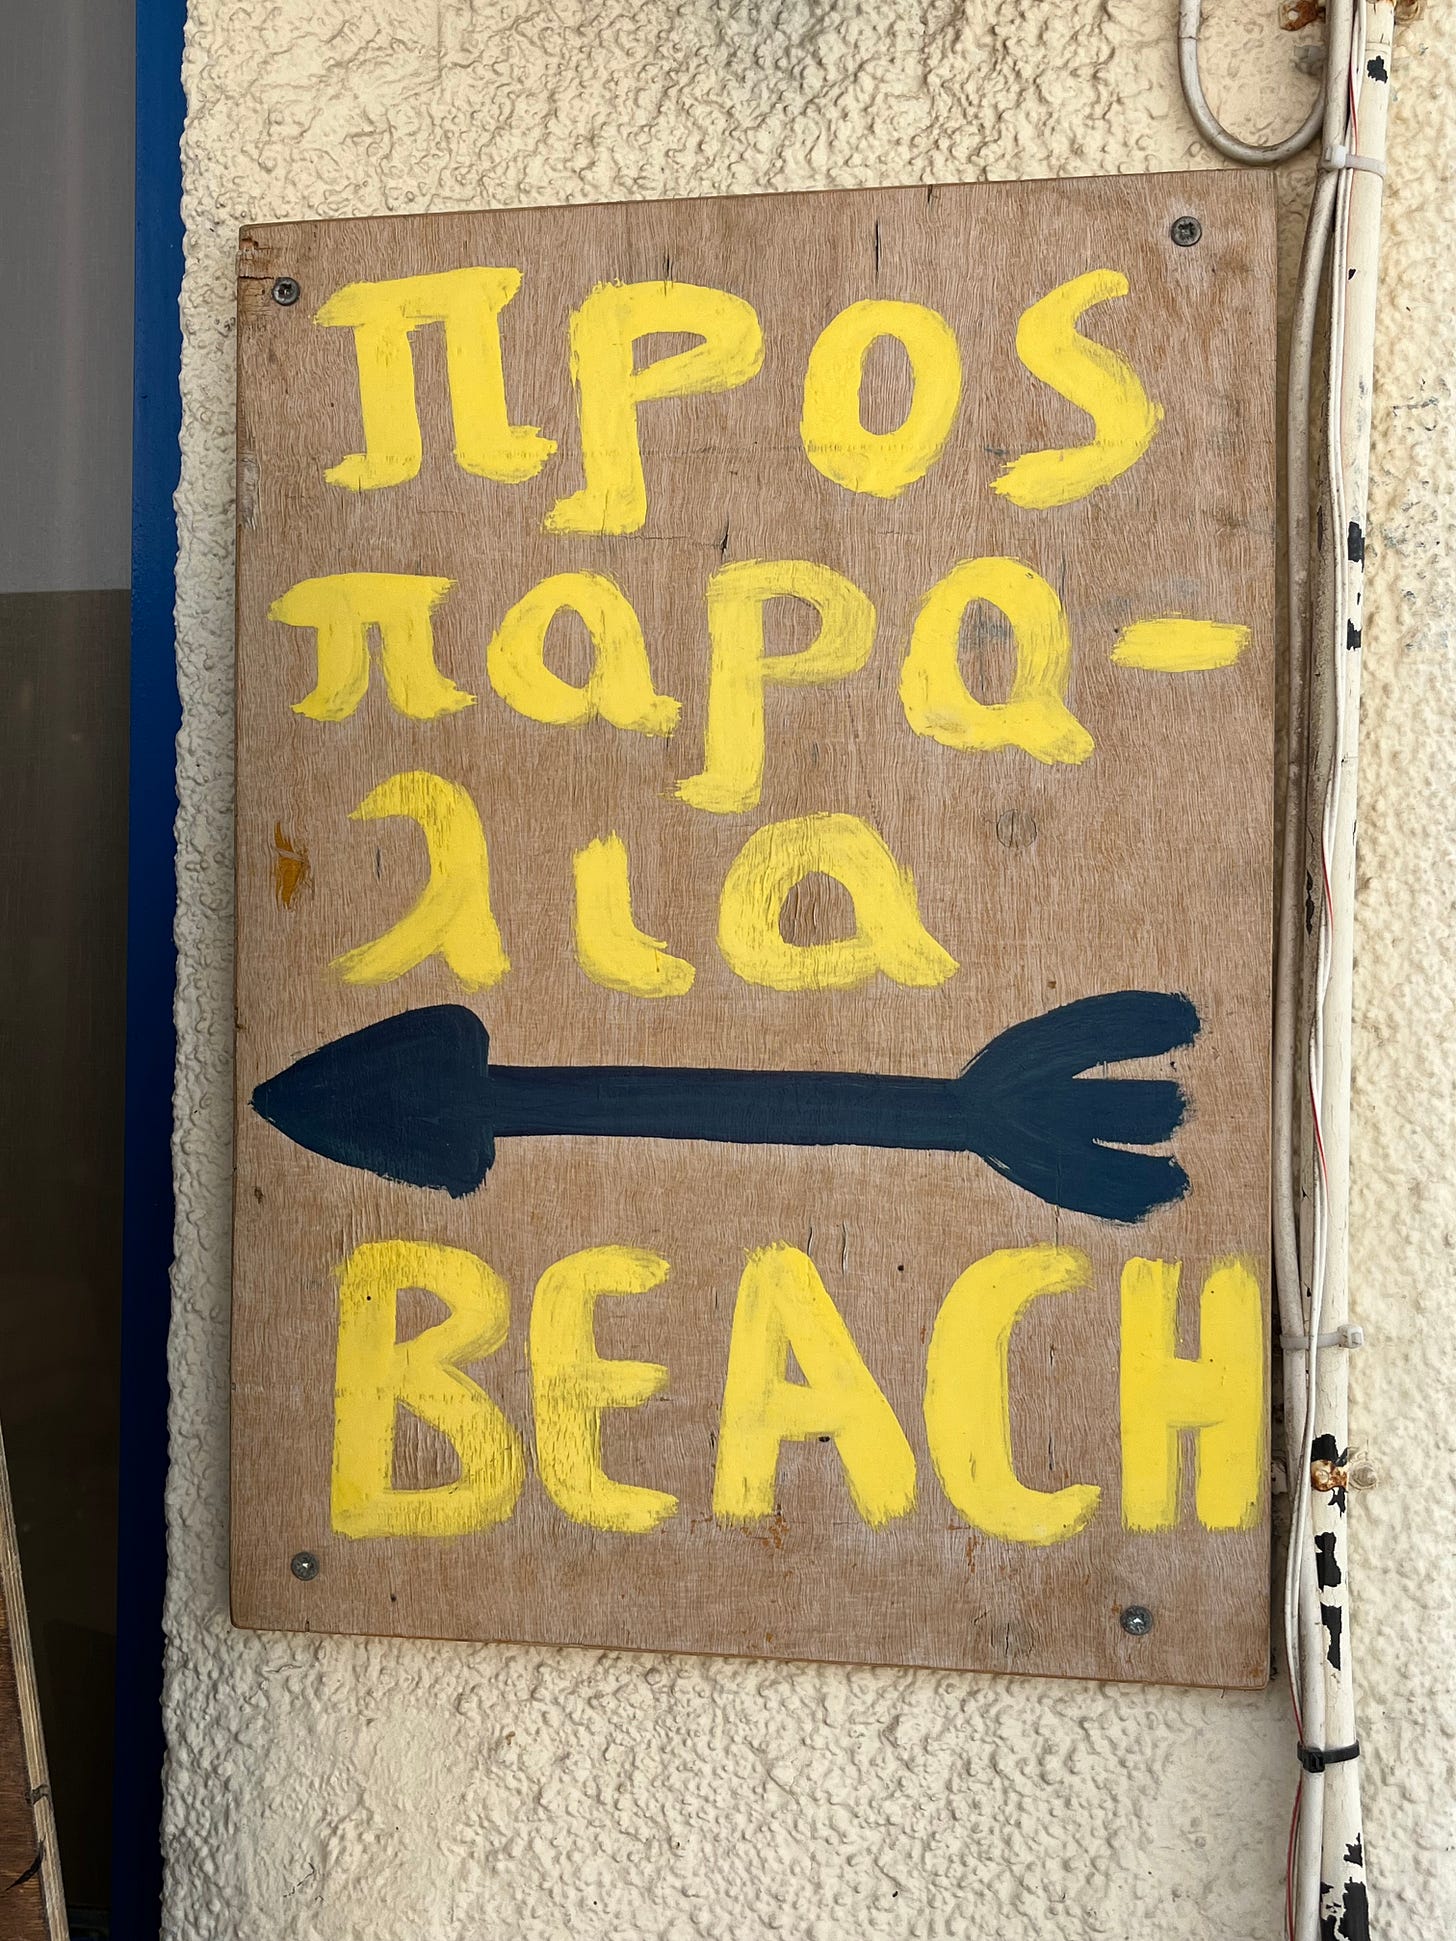 Προς
παρα-
λια
BEACH